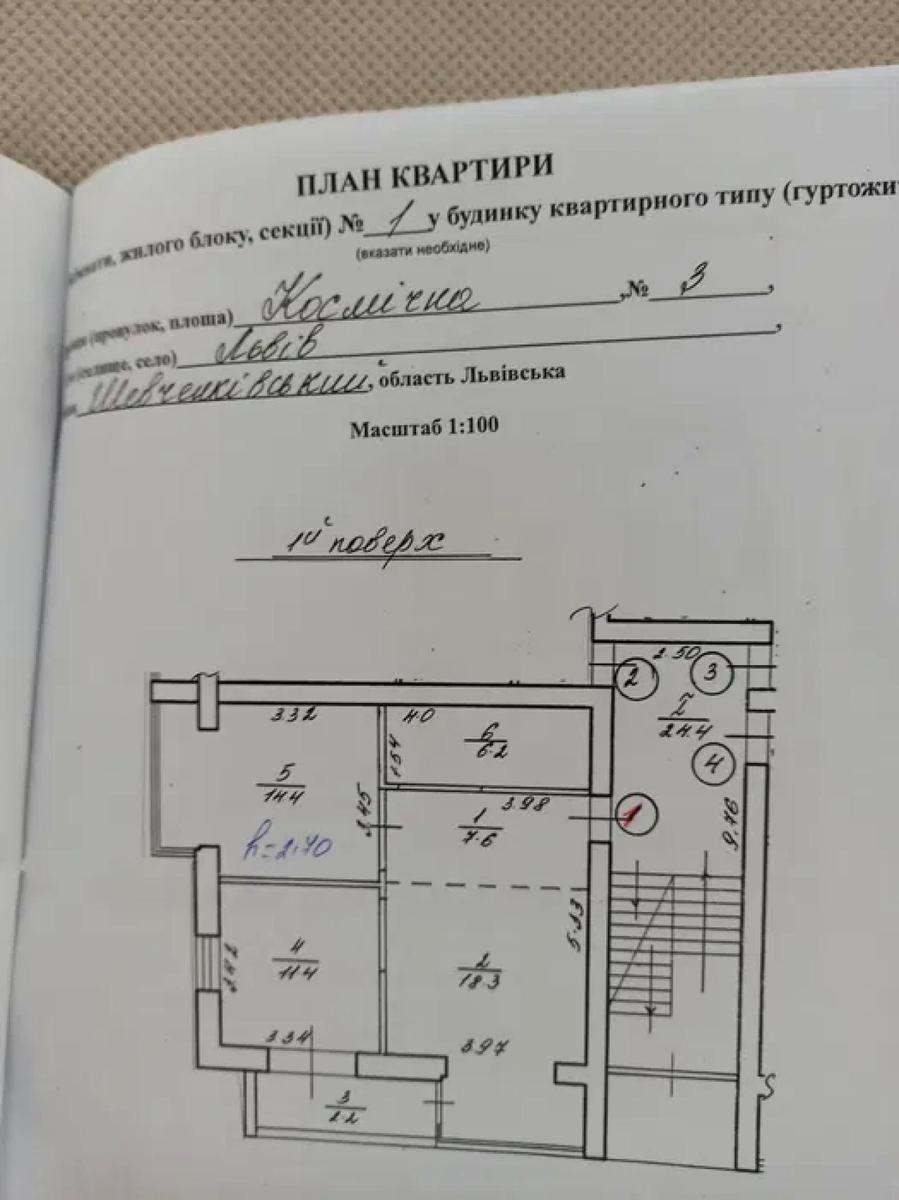 ПЛАН КВАРТИРИ
жилого блоку, секції) № 1 у будинку квартирного типу (гуртожи
(вказати необхідне)
(провулок, площа) Космічна, № 3,
(селище, село) Львів,
Шевченківський, область Львівська
Масштаб 1:100
1й поверх
2.50
2
3
I
24.4
4
1
9.76
3.32
4.0
6
6.2
1.54
5
14.4
3.45
3.98
1
7.6
h=2.70
5.33
4
11.4
2
18.3
3.34
3.97
3
2.2